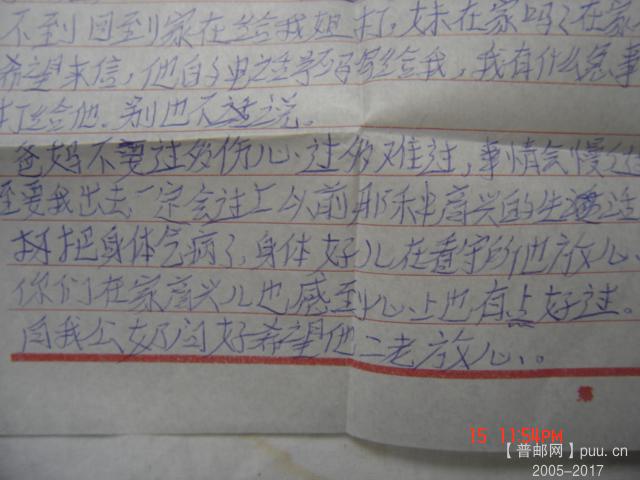 不到回到家在给我姐打，妹在家吗？在家
希望来信，他的电话号码写给我，我有什么急事
打给他、别也不话说。
爸妈不要过多伤心、过多难过，事情气慢
至要我出去一定会过上以前那种高兴的生活
把身体气病了，身体好儿在看守所也放心、
你们在家高兴儿也感到心上也有点好过。
向我公奶问好希望他二老放心..
第
15 11:54PM
【普邮网】puu.cn
2005-2017